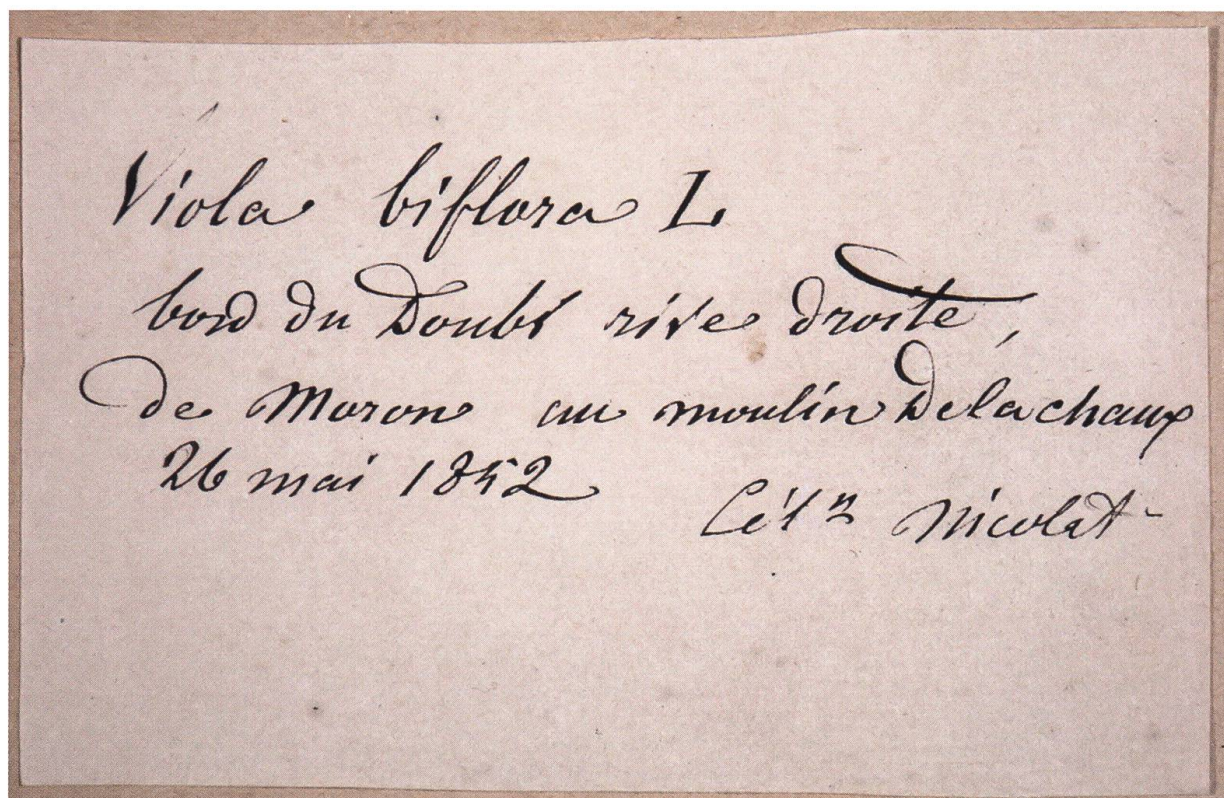 Viola biflora L
bord du Doubs rive droite,
de Moron au moulin Delachaux
26 mai 1852
Cés.n Nicolet